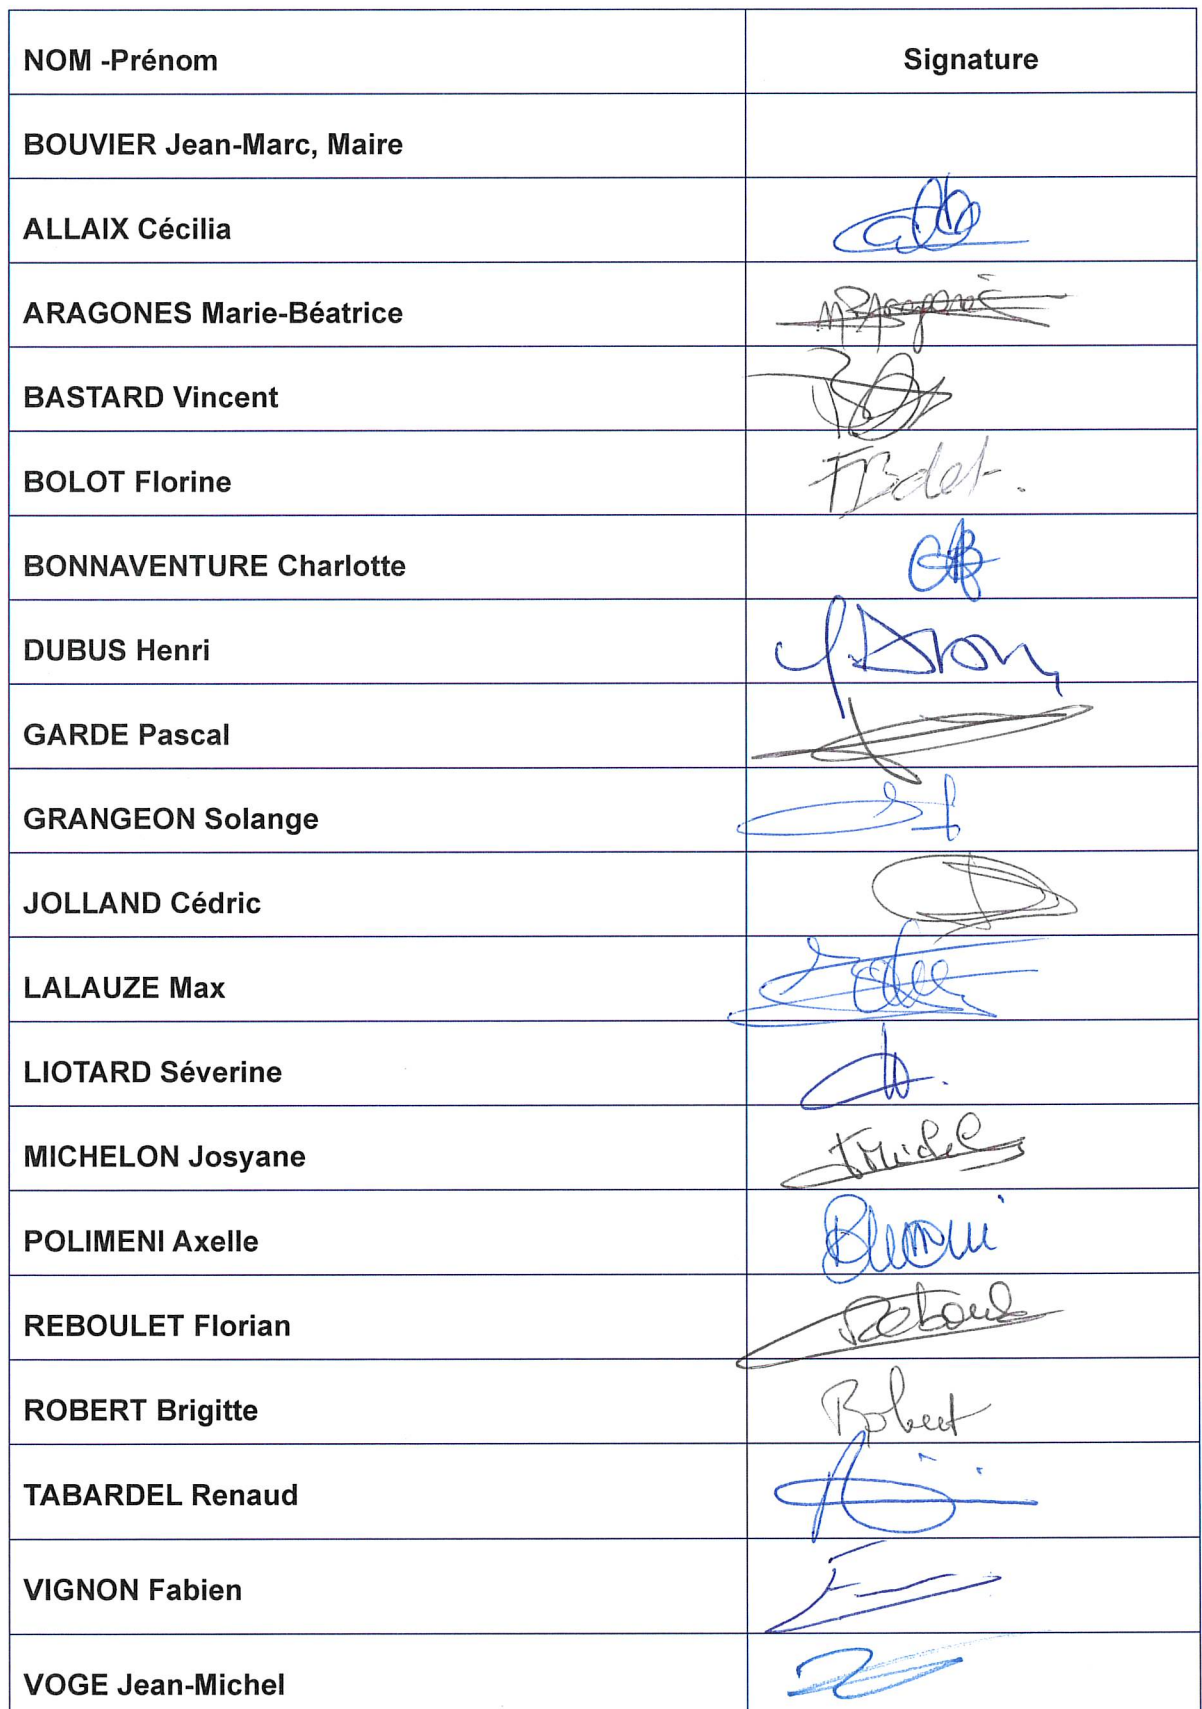 NOM -Prénom Signature
BOUVIER Jean-Marc, Maire
ALLAIX Cécilia
ARAGONES Marie-Béatrice
BASTARD Vincent
BOLOT Florine
BONNAVENTURE Charlotte
DUBUS Henri
GARDE Pascal
GRANGEON Solange
JOLLAND Cédric
LALAUZE Max
LIOTARD Séverine
MICHELON Josyane
POLIMENI Axelle
REBOULET Florian
ROBERT Brigitte
TABARDEL Renaud
VIGNON Fabien
VOGE Jean-Michel